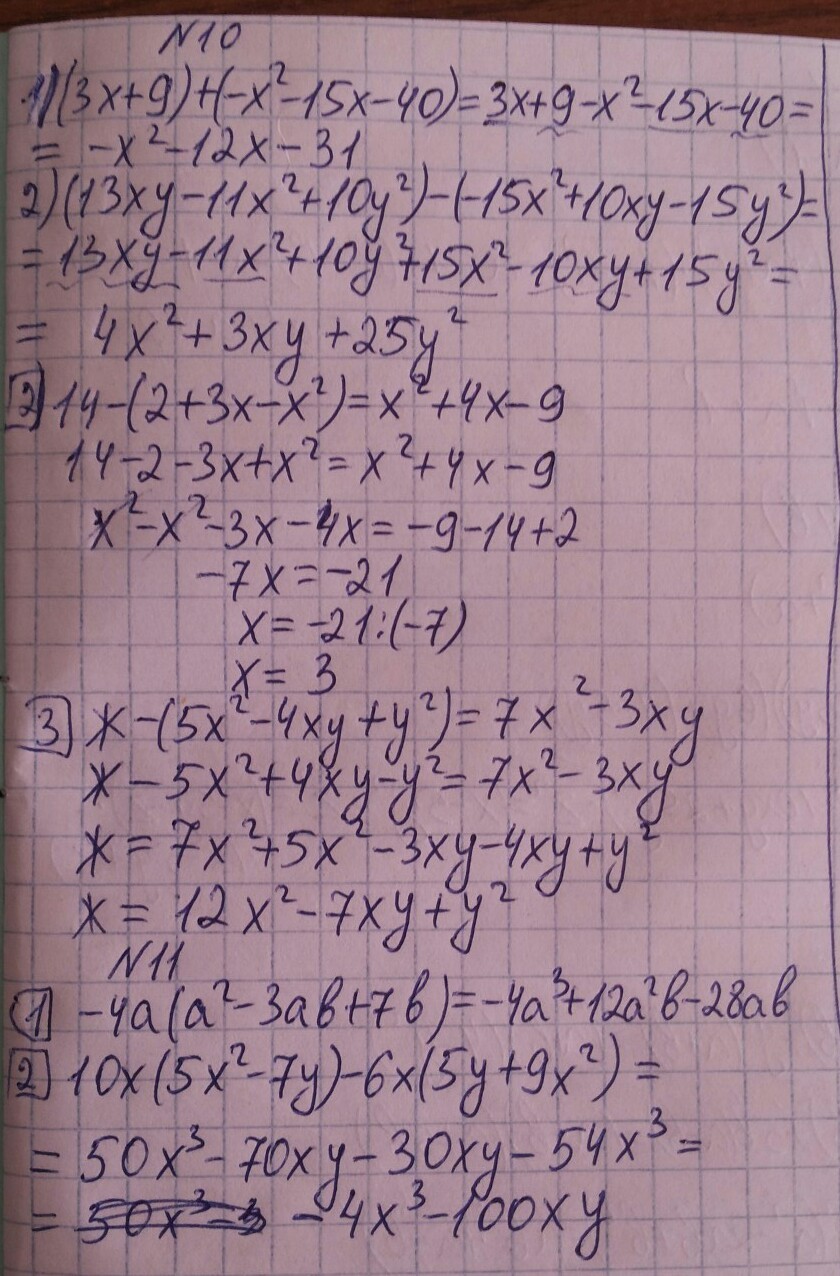 N10
1)(3x+9)+(-x²-15x-40)=3x+9-x²-15x-40=
= -x²-12x-31
2)(13xy-11x²+10y²)-(-15x²+10xy-15y²)=
=13xy-11x²+10y²+15x²-10xy+15y²=
= 4x²+3xy+25y²
2) 14-(2+3x-x²)=x²+4x-9
14-2-3x+x²=x²+4x-9
x²-x²-3x-4x=-9-14+2
-7x=-21
x=-21:(-7)
x=3
3) ж-(5x²-4xy+y²)=7x²-3xy
ж-5x²+4xy-y²=7x²-3xy
ж=7x²+5x²-3xy-4xy+y²
ж=12x²-7xy+y²
N11
1) -4a(a²-3ab+7b)=-4a³+12a²b-28ab
2) 10x(5x²-7y)-6x(5y+9x²)=
=50x³-70xy-30xy-54x³=
= -4x³-100xy